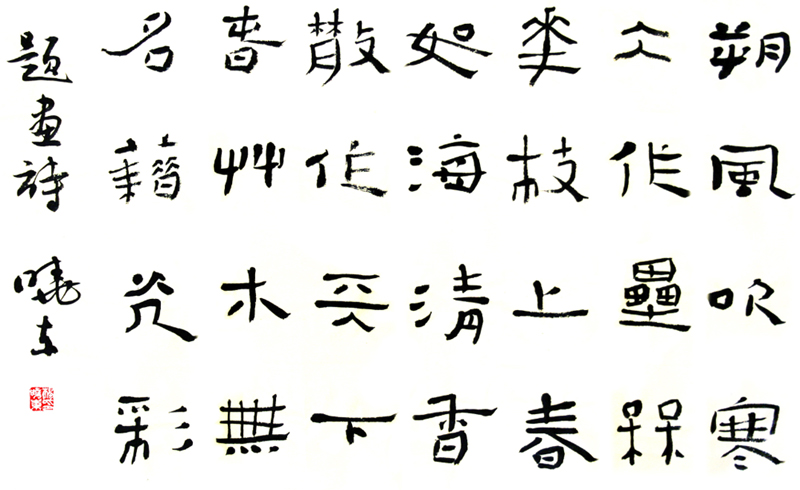 朔風吹寒
仌作壘槑
華枝上春
如海清香
散作天下
春艸木無
名藉光彩
題畫詩 曉東